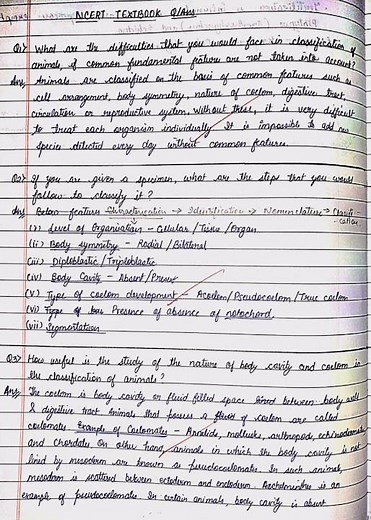 NCERT TEXTBOOK Q/Ans
Q1) What are the difficulties that you would face in classification of
animals, if common fundamental features are not taken into account?
Ans) Animals are classified on the basis of common features such as
cell arrangement, body symmetry, nature of coelom, digestive tract,
circulation or reproductive system. Without these, it is very difficult
to treat each organism individually. It is impossible to add new
species detected every day without common features.
Q2) If you are given a specimen, what are the steps that you would
follow to classify it?
Ans Below features Characterisation → Identification → Nomenclature → Classifi
cation
(i) Level of Organisation - Cellular / Tissue / Organ
(ii) Body symmetry - Radial / Bilateral
(iii) Diploblastic / Triploblastic
(iv) Body Cavity - Absent / Present
(v) Type of coelom development - Acoelom / Pseudocoelom / True coelom
(vi) Type of Presence of absence of notochord
(vii) Segmentation
Q3) How useful is the study of the nature of body cavity and coelom in
the classification of animals?
Ans) The coelom is body cavity or fluid filled space lined between body wall
& digestive tract. Animals that possess a coelom are called
coelomates Example of Coelomates - Annelida, mollusks, arthropods, echinoderms
and chordates On other hand, animals in which the body cavity is not
lined by mesoderm are known as pseudocoelomates. In such animals,
mesoderm is scattered between ectoderm and endoderm. Aschelminthes is an
example of pseudocoelomates. In certain animals, body cavity is absent